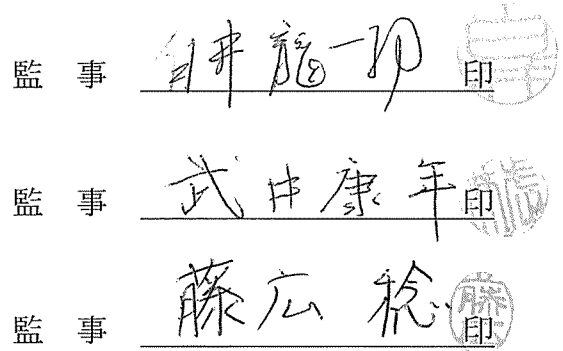 監 事 臼井龍一郎 印
監 事 武井康年 印
監 事 藤広 稔 印